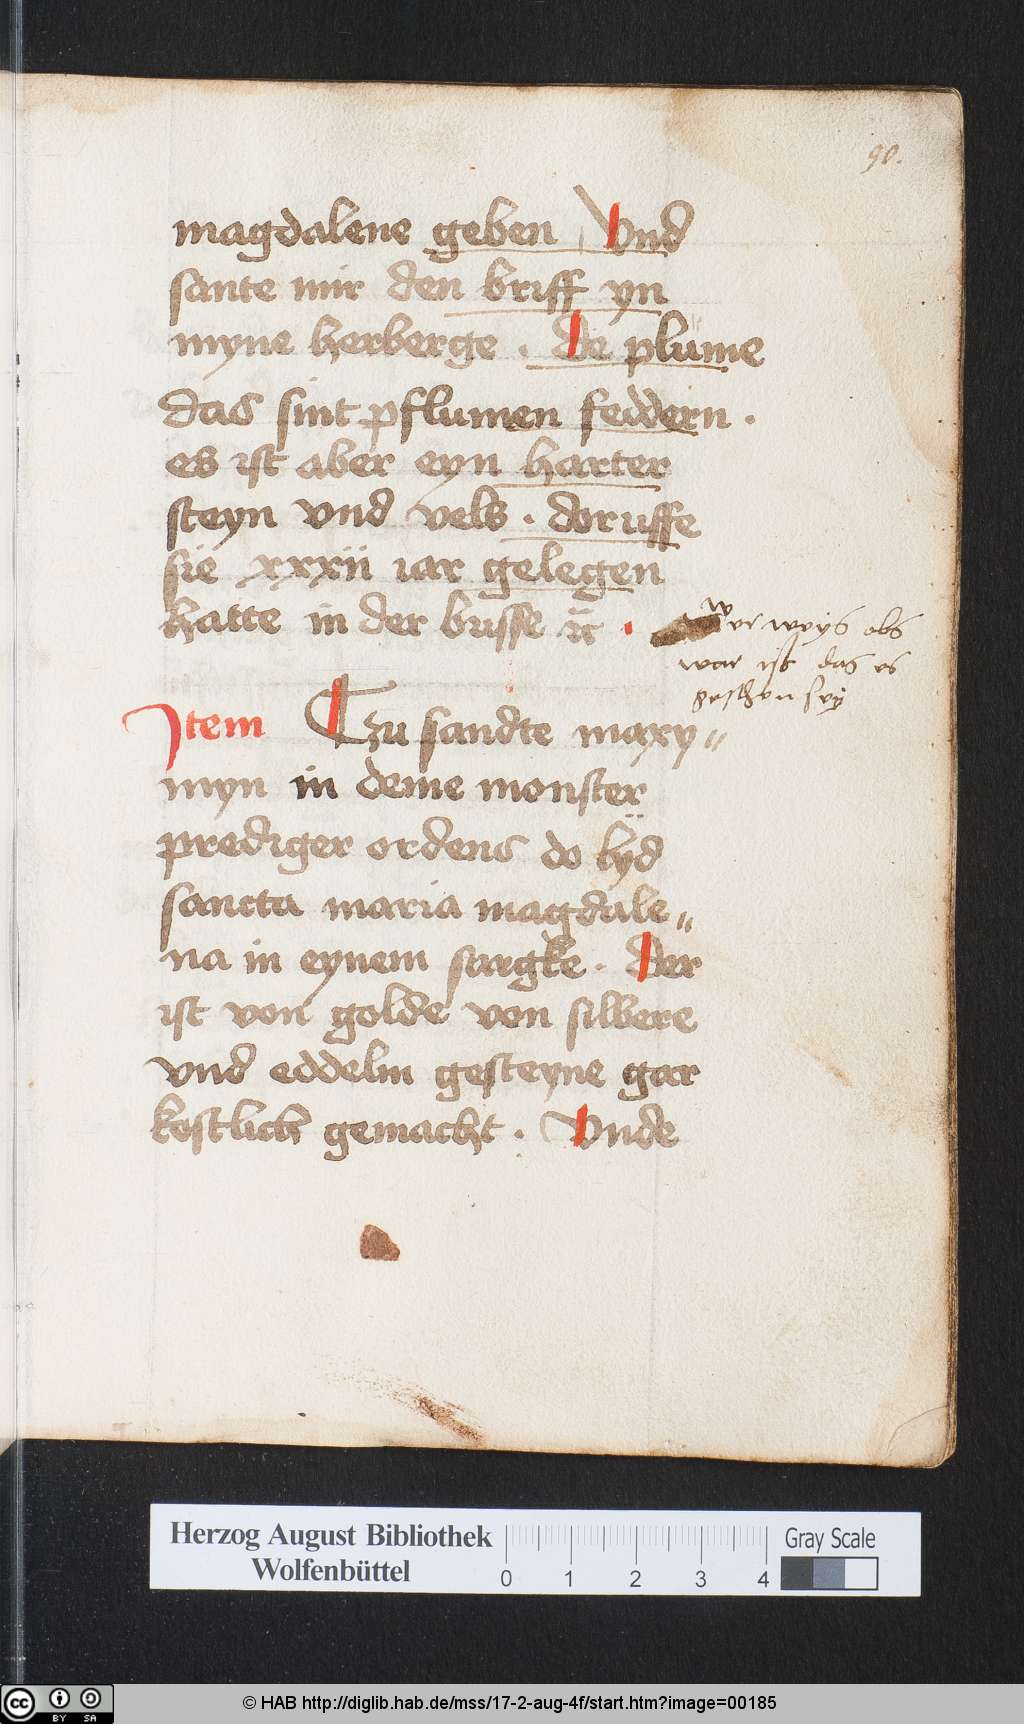 90.
magdalene geben Vnd
sante mir den briff yn
myne herberge . De plume
das sint pflumen feddern .
es ist aber eyn harter
steyn vnd vels . doruffe
sie xxxii iar gelegen
hatte in der busse ꝛc .
wer weys obs
war ist das es
geschen sey
Item Czu sandte maxy„
myn in deme monster
prediger ordens do lÿd
sancta maria magdale„
na in eynem sargke . Der
ist von golde von silbere
vnd eddelm gesteyne gar
kostlich gemacht . Vnde
Herzog August Bibliothek
Wolfenbüttel
0 1 2 3 4
Gray Scale
cc BY SA
© HAB http://diglib.hab.de/mss/17-2-aug-4f/start.htm?image=00185